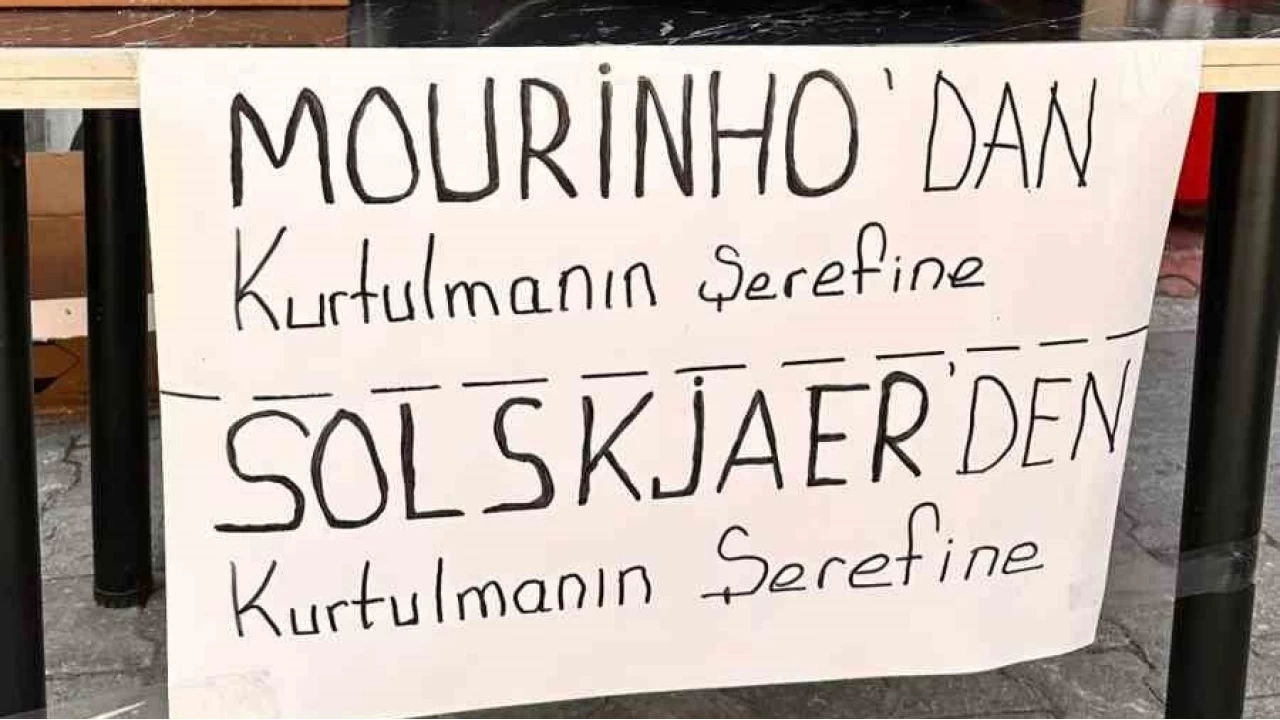 MOURİNHO'DAN
Kurtulmanın Şerefine
SOLSKJAER'DEN
Kurtulmanın Şerefine